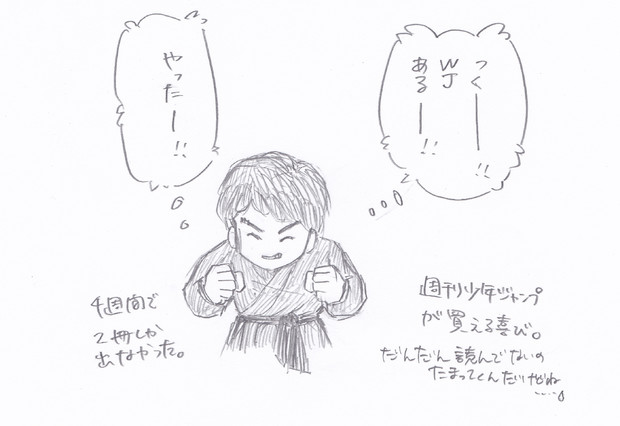 っくーー!!
WJ
あるー!!
やったー!!
週刊少年ジャンプ
が買える喜び。
だんだん読んでないの
たまってくんだけどね
……。
4週間で
2冊しか
出なかった。